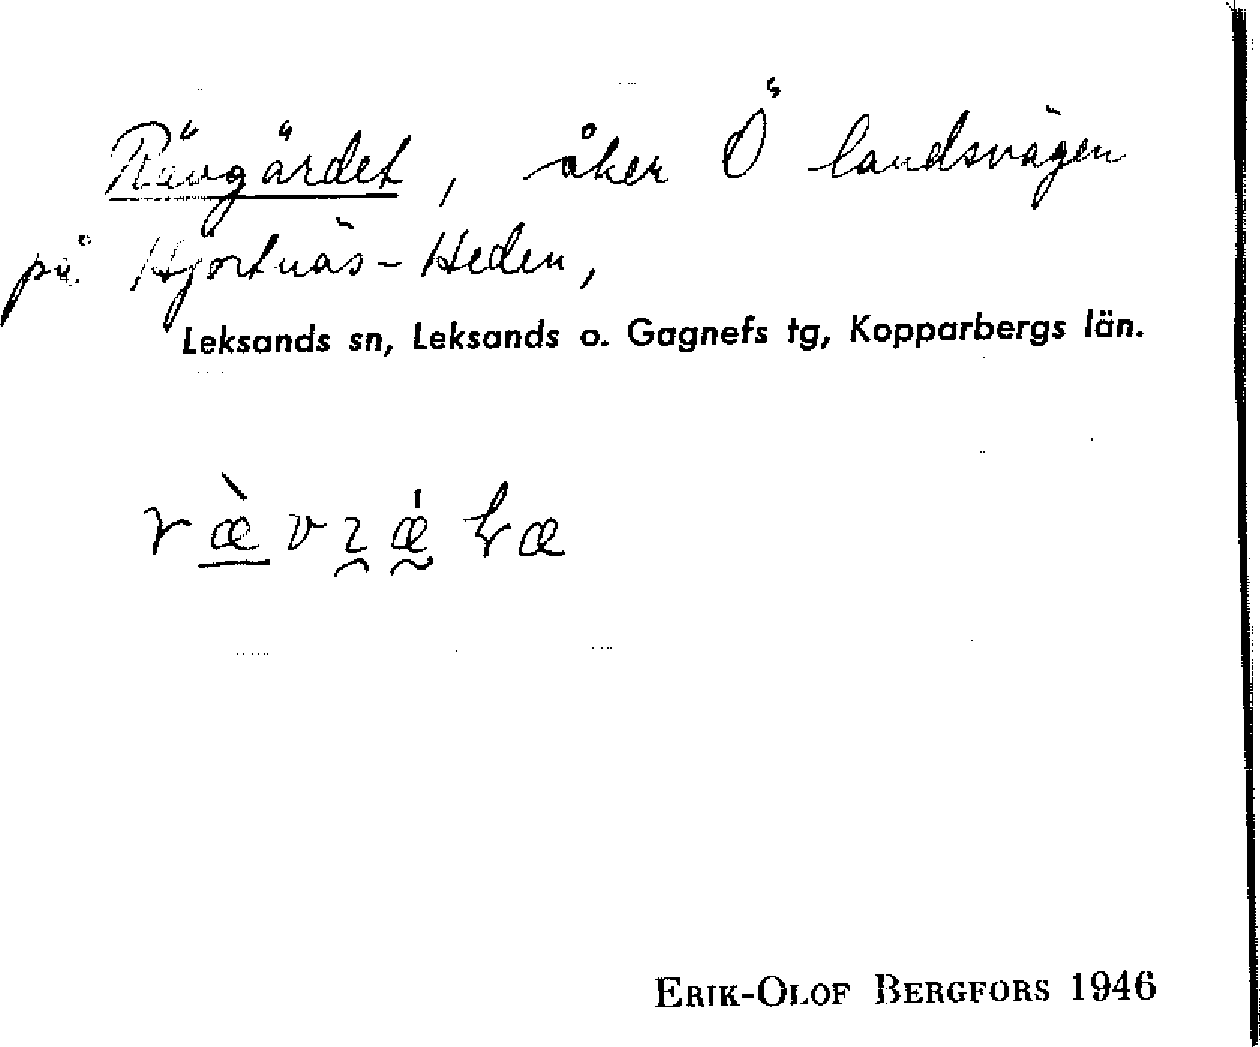 Rävgärdet, åker Ö landsvägen
på Hjortnäs-Heden,
Leksands sn, Leksands o. Gagnefs tg, Kopparbergs län.
ERIK-OLOF BERGFORS 1946